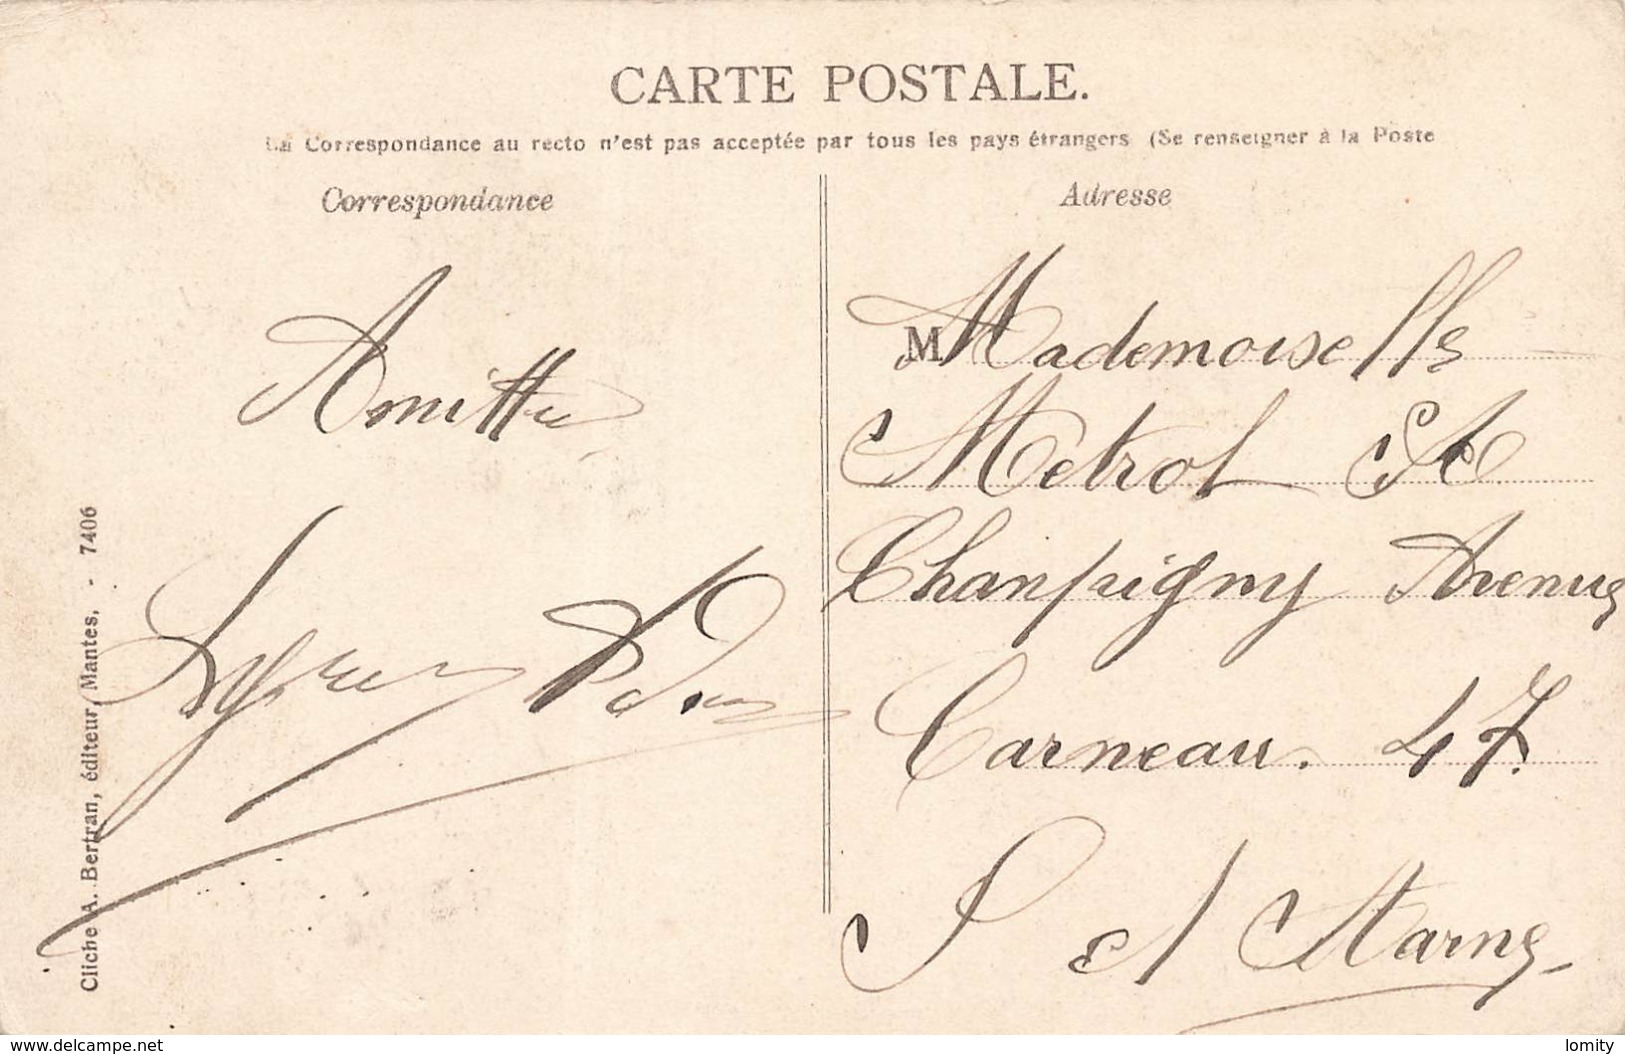 CARTE POSTALE.
La Correspondance au recto n'est pas acceptée par tous les pays étrangers (Se renseigner à la Poste
Correspondance
Adresse
Amitié
M Mademoiselle
Metrol
Champigny Avenue
Carneau. 47.
S et Marne
Cliche A. Bertran, éditeur, Mantes. - 7406
www.delcampe.net
lomity